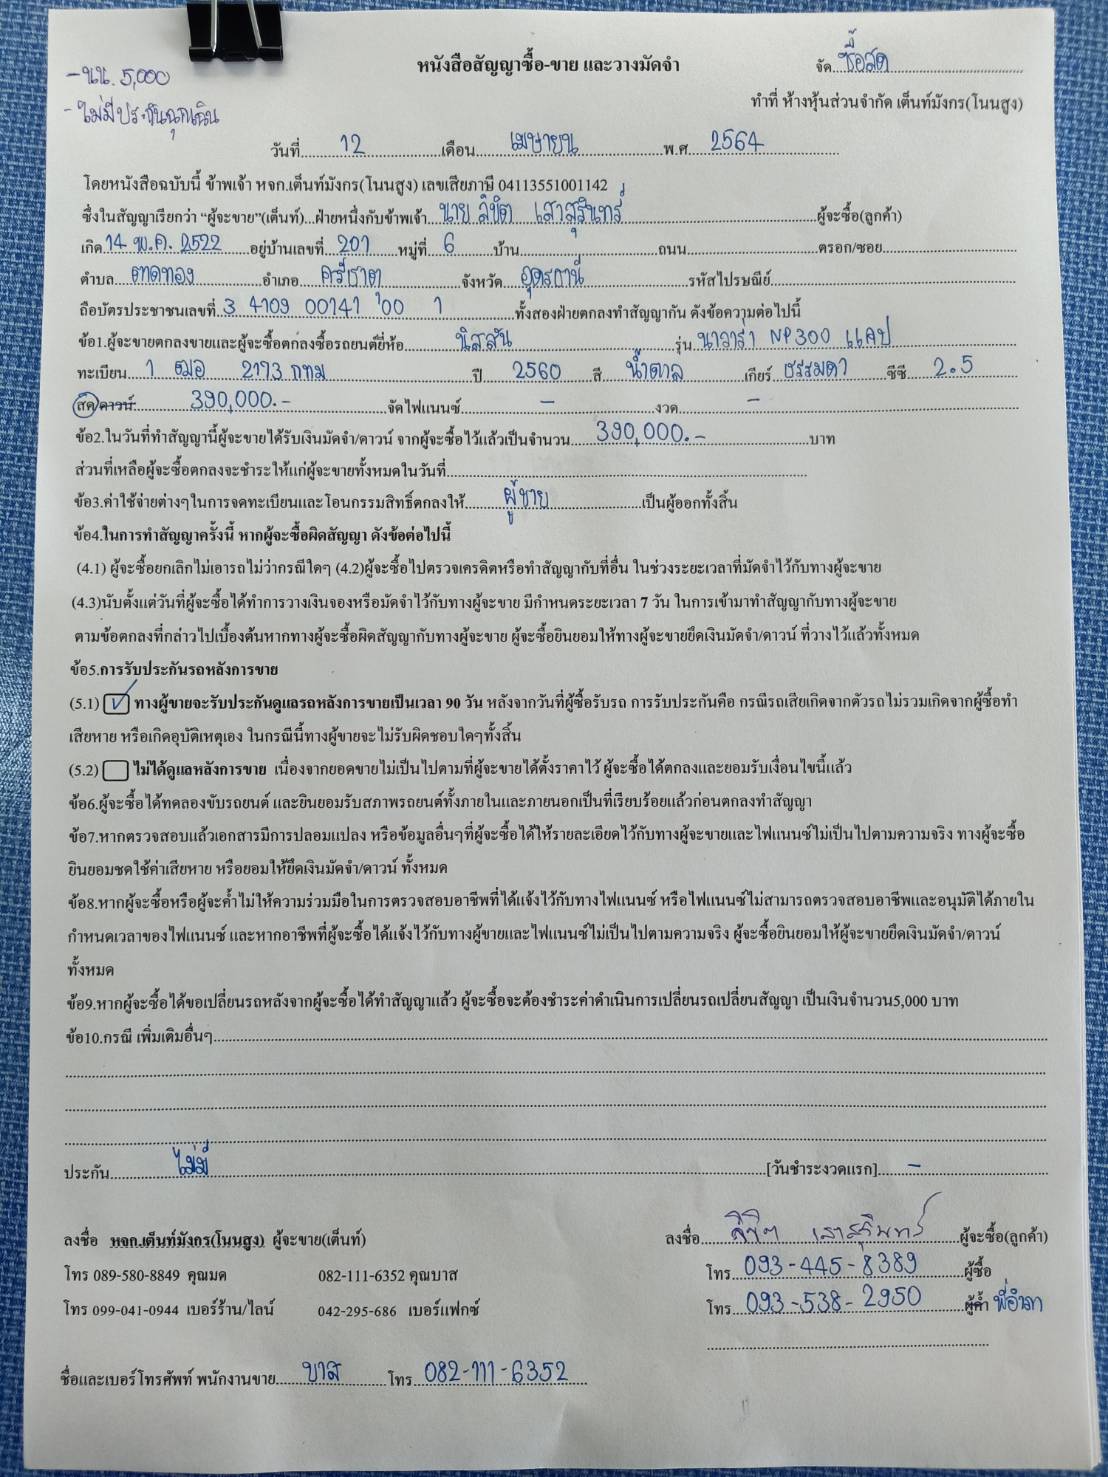 หนังสือสัญญาซื้อ-ขาย และวางมัดจำ
จัด ซื้อสด
-นน. 5,000
- ไม่มีประกันฉุกเฉิน
ทำที่ ห้างหุ้นส่วนจำกัด เต็นท์มังกร(โนนสูง)
วันที่ 12 เดือน เมษายน พ.ศ 2564
โดยหนังสือฉบับนี้ ข้าพเจ้า หจก.เต็นท์มังกร(โนนสูง) เลขเสียภาษี 04113551001142
ซึ่งในสัญญาเรียกว่า “ผู้จะขาย”(เต็นท์)...ฝ่ายหนึ่งกับข้าพเจ้า นาย ลิขิต เสาสุรินทร์ ผู้จะซื้อ(ลูกค้า)
เกิด 14 พ.ค. 2522 อยู่บ้านเลขที่ 201 หมู่ที่ 6 บ้าน ถนน ตรอก/ซอย
ตำบล ตาดทอง อำเภอ ศรีธาตุ จังหวัด อุดรธานี รหัสไปรษณีย์
ถือบัตรประชาชนเลขที่ 3 4109 00141 00 1 ทั้งสองฝ่ายตกลงทำสัญญากัน ดังข้อความต่อไปนี้
ข้อ1.ผู้จะขายตกลงขายและผู้จะซื้อตกลงซื้อรถยนต์ยี่ห้อ นิสสัน รุ่น นาวาร่า NP300 แคป
ทะเบียน 1 ฒอ 2173 กทม ปี 2560 สี น้ำตาล เกียร์ ธรรมดา ซีซี 2.5
สด/ดาวน์ 390,000.- จัดไฟแนนซ์ - งวด -
ข้อ2.ในวันที่ทำสัญญานี้ผู้จะขายได้รับเงินมัดจำ/ดาวน์ จากผู้จะซื้อไว้แล้วเป็นจำนวน 390,000.- บาท
ส่วนที่เหลือผู้จะซื้อตกลงจะชำระให้แก่ผู้จะขายทั้งหมดในวันที่
ข้อ3.ค่าใช้จ่ายต่างๆในการจดทะเบียนและโอนกรรมสิทธิ์ตกลงให้ ผู้ขาย เป็นผู้ออกทั้งสิ้น
ข้อ4.ในการทำสัญญาครั้งนี้ หากผู้จะซื้อผิดสัญญา ดังข้อต่อไปนี้
(4.1) ผู้จะซื้อยกเลิกไม่เอารถไม่ว่ากรณีใดๆ (4.2)ผู้จะซื้อไปตรวจเครดิตหรือทำสัญญากับที่อื่น ในช่วงระยะเวลาที่มัดจำไว้กับทางผู้จะขาย
(4.3)นับตั้งแต่วันที่ผู้จะซื้อได้ทำการวางเงินจองหรือมัดจำไว้กับทางผู้จะขาย มีกำหนดระยะเวลา 7 วัน ในการเข้ามาทำสัญญากับทางผู้จะขาย
ตามข้อตกลงที่กล่าวไปเบื้องต้นหากทางผู้จะซื้อผิดสัญญากับทางผู้จะขาย ผู้จะซื้อยินยอมให้ทางผู้จะขายยึดเงินมัดจำ/ดาวน์ ที่วางไว้แล้วทั้งหมด
ข้อ5.การรับประกันรถหลังการขาย
(5.1) ✓ ทางผู้ขายจะรับประกันดูแลรถหลังการขายเป็นเวลา 90 วัน หลังจากวันที่ผู้ซื้อรับรถ การรับประกันคือ กรณีรถเสียเกิดจากตัวรถไม่รวมเกิดจากผู้ซื้อทำ
เสียหาย หรือเกิดอุบัติเหตุเอง ในกรณีนี้ทางผู้ขายจะไม่รับผิดชอบใดๆทั้งสิ้น
(5.2) ไม่ได้ดูแลหลังการขาย เนื่องจากยอดขายไม่เป็นไปตามที่ผู้จะขายได้ตั้งราคาไว้ ผู้จะซื้อได้ตกลงและยอมรับเงื่อนไขนี้แล้ว
ข้อ6.ผู้จะซื้อได้ทดลองขับรถยนต์ และยินยอมรับสภาพรถยนต์ทั้งภายในและภายนอกเป็นที่เรียบร้อยแล้วก่อนตกลงทำสัญญา
ข้อ7.หากตรวจสอบแล้วเอกสารมีการปลอมแปลง หรือข้อมูลอื่นๆที่ผู้จะซื้อได้ให้รายละเอียดไว้กับทางผู้จะขายและไฟแนนซ์ไม่เป็นไปตามความจริง ทางผู้จะซื้อ
ยินยอมชดใช้ค่าเสียหาย หรือยอมให้ยึดเงินมัดจำ/ดาวน์ ทั้งหมด
ข้อ8.หากผู้จะซื้อหรือผู้จะค้ำไม่ให้ความร่วมมือในการตรวจสอบอาชีพที่ได้แจ้งไว้กับทางไฟแนนซ์ หรือไฟแนนซ์ไม่สามารถตรวจสอบอาชีพและอนุมัติได้ภายใน
กำหนดเวลาของไฟแนนซ์ และหากอาชีพที่ผู้จะซื้อได้แจ้งไว้กับทางผู้ขายและไฟแนนซ์ไม่เป็นไปตามความจริง ผู้จะซื้อยินยอมให้ผู้จะขายยึดเงินมัดจำ/ดาวน์
ทั้งหมด
ข้อ9.หากผู้จะซื้อได้ขอเปลี่ยนรถหลังจากผู้จะซื้อได้ทำสัญญาแล้ว ผู้จะซื้อจะต้องชำระค่าดำเนินการเปลี่ยนรถเปลี่ยนสัญญา เป็นเงินจำนวน5,000 บาท
ข้อ10.กรณี เพิ่มเติมอื่นๆ
ประกัน ไม่มี [วันชำระงวดแรก] -
ลงชื่อ หจก.เต็นท์มังกร(โนนสูง) ผู้จะขาย(เต็นท์) ลงชื่อ ลิขิต เสาสุรินทร์ ผู้จะซื้อ(ลูกค้า)
โทร 089-580-8849 คุณมด 082-111-6352 คุณบาส โทร 093-445-8389 ผู้ซื้อ
โทร 099-041-0944 เบอร์ร้าน/ไลน์ 042-295-686 เบอร์แฟกซ์ โทร 093-538-2950 ผู้ค้ำ
ชื่อและเบอร์โทรศัพท์ พนักงานขาย บาส โทร 082-111-6352